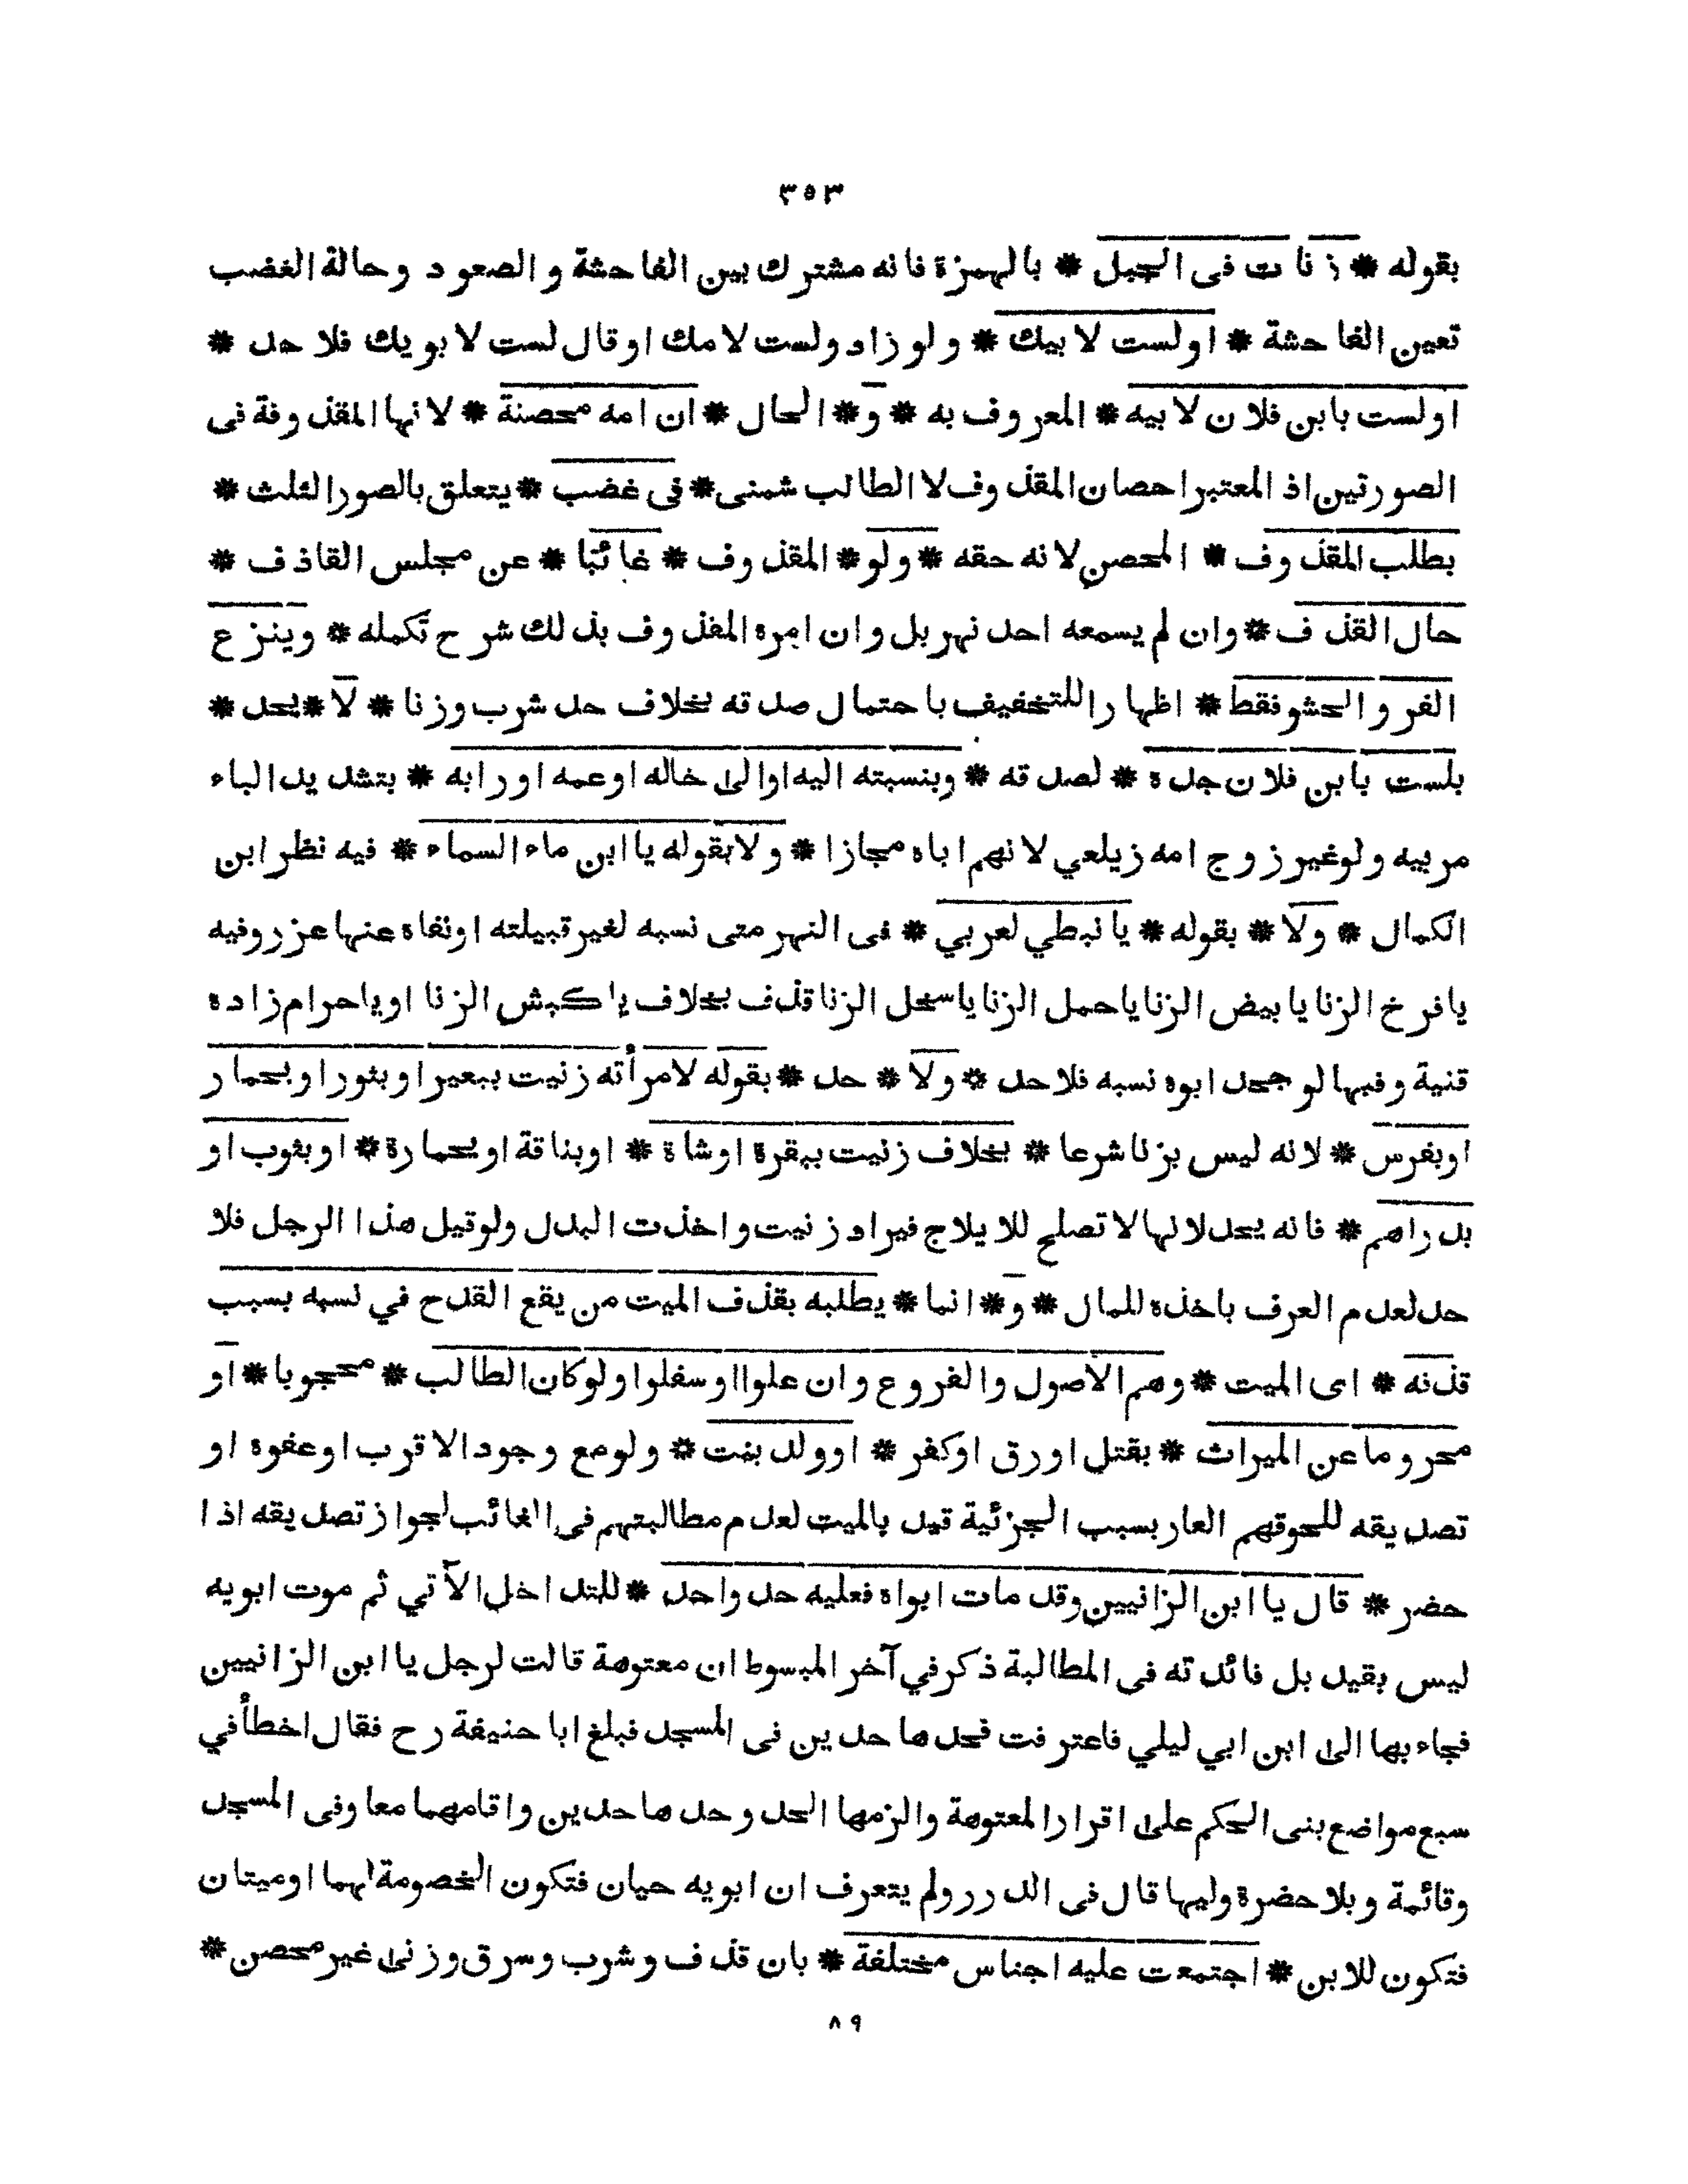 ٣٥٣
بقوله * زنات فى الجبل * بالهمزة فانه مشترك بين الفاحشة والصعود وحالة الغضب
تعين الفاحشة * اولست لابيك * ولوزاد ولست لامك اوقال لست لابويك فلاحد *
اولست بابن فلان لابيه * المعروف به * و * الحال * ان امه محصنة * لانها المقذوفة فى
الصورتين اذ المعتبر احصان المقذوف لا الطالب شمنى * فى غضب * يتعلق بالصور الثلث *
بطلب المقذوف * المحصن لانه حقه * ولو * المقذوف * غائبا * عن مجلس القاذف *
حال القذف * وان لم يسمعه احد نهر بل وان امره المقذوف بذلك شرح تكمله * وينزع
الفرو والحشو فقط * اظهارا للتخفيف باحتمال صدقه بخلاف حد شرب وزنا * لا * يحد *
بلست بابن فلان جده * لصدقه * وبنسبته اليه اوالى خاله اوعمه اورابه * بتشديد الباء
مربيه ولوغير زوج امه زيلعي لانهم اباه مجازا * ولابقوله يا ابن ماء السماء * فيه نظر ابن
الكمال * ولا * بقوله * يا نبطي لعربي * فى النهر متى نسبه لغير قبيلته اونفاه عنها عزر وفيه
يا فرخ الزنا يا بيض الزنا يا حمل الزنا يا سخل الزنا قذف بخلاف يا كبش الزنا اويا حرام زاده
قنية وفيها لو جحد ابوه نسبه فلاحد * ولا * حد * بقوله لامرأته زنيت ببعير اوبثور اوبحمار
اوبفرس * لانه ليس بزنا شرعا * بخلاف زنيت ببقرة اوشاة * اوبناقة اوبحمارة * اوبثوب او
بدراهم * فانه يحد لانها لا تصلح للايلاج فيراد زنيت واخذت البدل ولوقيل هذا الرجل فلا
حد لعدم العرف باخذه للمال * و * انما * يطلبه بقذف الميت من يقع القدح في نسبه بسبب
قذفه * اى الميت * وهم الاصول والفروع وان علوا اوسفلوا ولوكان الطالب * محجوبا * او
محروما عن الميراث * بقتل اورق اوكفر * اوولد بنت * ولومع وجود الاقرب اوعفوه او
تصديقه للحوقهم العار بسبب الجزئية قيد بالميت لعدم مطالبتهم فى الغائب لجواز تصديقه اذا
حضر * قال يا ابن الزانيين وقد مات ابواه فعليه حد واحد * للتداخل الآتي ثم موت ابويه
ليس بقيد بل فائدته فى المطالبة ذكر في آخر المبسوط ان معتوهة قالت لرجل يا ابن الزانيين
فجاء بها الى ابن ابي ليلي فاعترفت فحدها حدين فى المسجد فبلغ ابا حنيفة رح فقال اخطأ في
سبع مواضع بنى الحكم على اقرار المعتوهة والزمها الحد وحدها حدين واقامهما معا وفى المسجد
وقائمة وبلا حضرة وليها قال فى الدرر ولم يتعرف ان ابويه حيان فتكون الخصومة لهما اوميتان
فتكون للابن * اجتمعت عليه اجناس مختلفة * بان قذف وشرب وسرق وزنى غير محصن *
٨٩